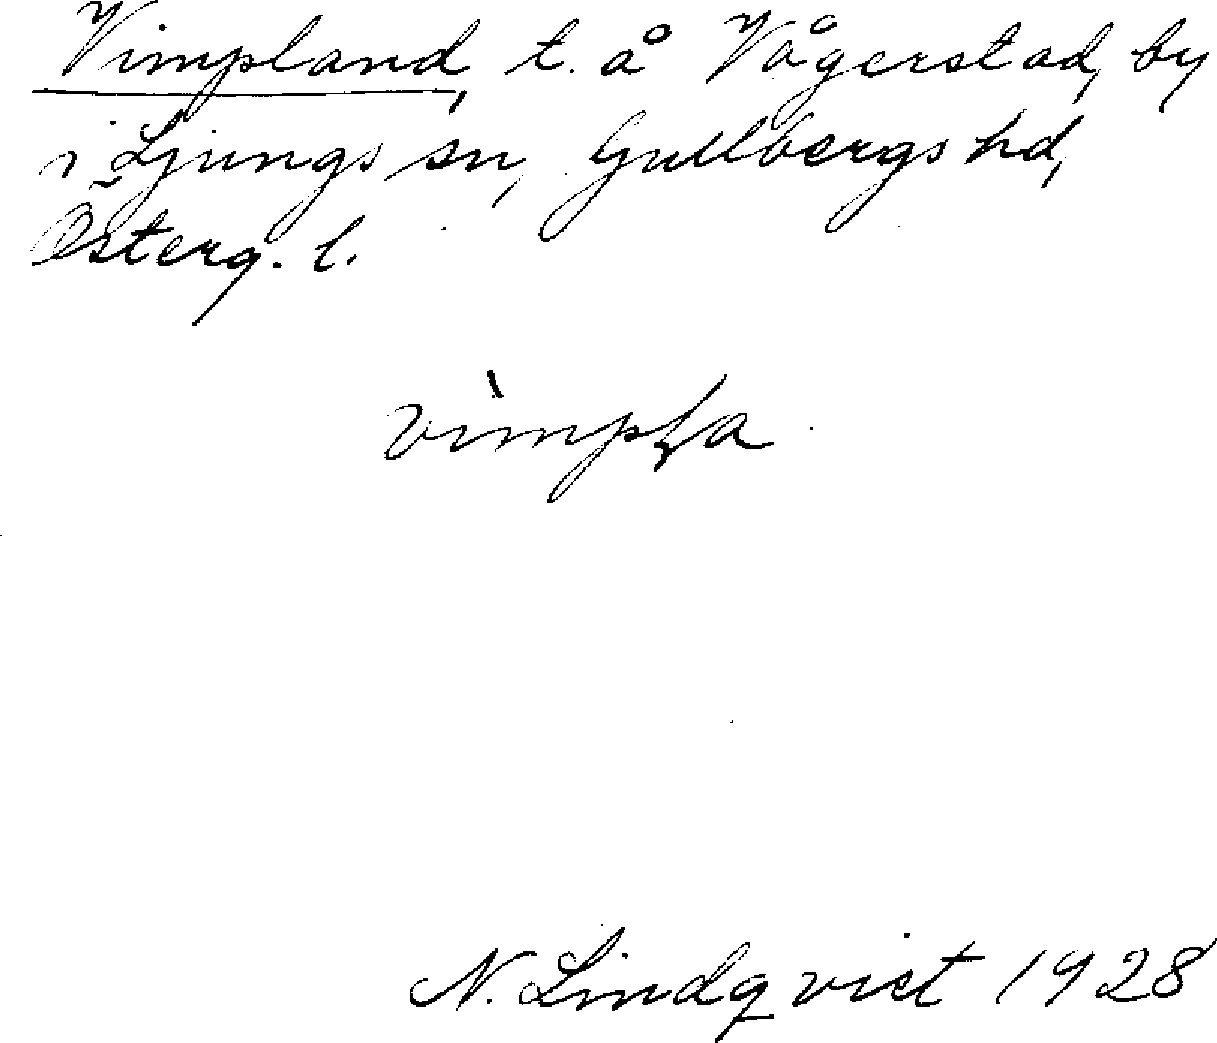 Vimpland, t. å Vågerstad, by
i Ljungs sn, Gullbergs hd,
Österg. l.
N. Lindqvist 1928